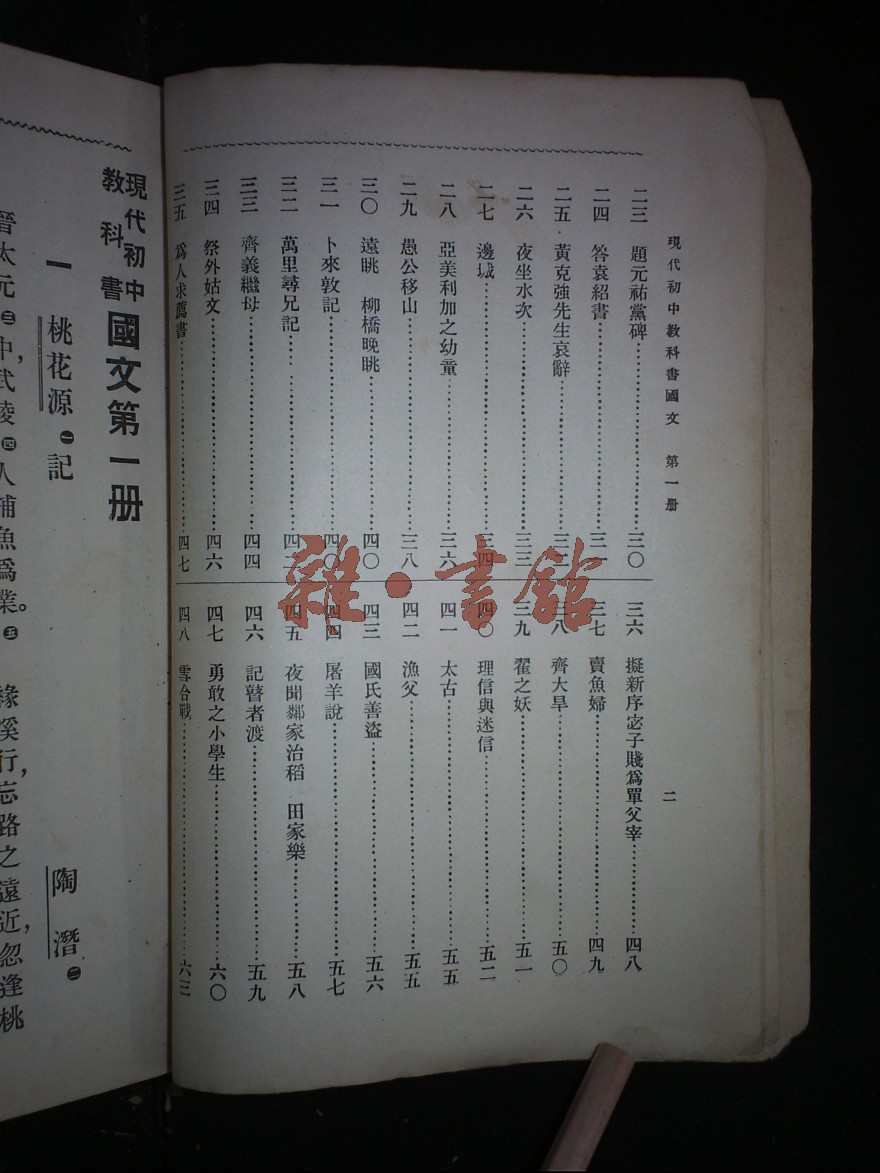 現代初中教科書國文 第一册
二
二三 題元祐黨碑 三〇
二四 答袁紹書 三一
二五 黃克強先生哀辭
二六 夜坐水次 三三
二七 邊城 三四
二八 亞美利加之幼童 三六
二九 愚公移山 三八
三〇 遠眺 柳橋晚眺 四〇
三一 卜來敦記 四〇
三二 萬里尋兄記 四二
三三 齊義繼母 四四
三四 祭外姑文 四六
三五 爲人求薦書 四七
三六 擬新序宓子賤爲單父宰 四八
三七 賣魚婦 四九
三八 齊大旱 五〇
三九 翟之妖 五一
四〇 理信與迷信 五二
四一 太古 五五
四二 漁父 五五
四三 國氏善盜 五六
四四 屠羊說 五七
四五 夜聞鄰家治稻 田家樂 五八
四六 記瞽者渡 五九
四七 勇敢之小學生 六〇
四八 雪合戰 六三
雜·書館
現代初中教科書 國文第一册
一 桃花源㊀記 陶潛㊁
晉太元㊂中，武陵㊃人捕魚爲業。㊄ 緣溪行，忘路之遠近，忽逢桃